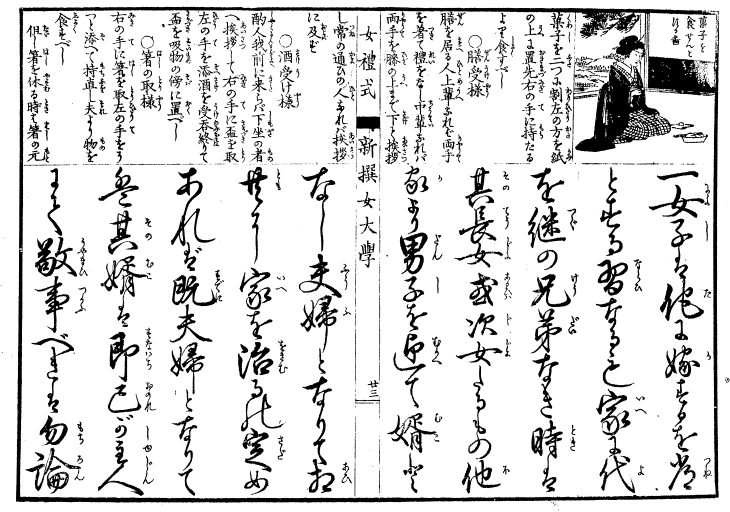 菓子を
食せんと
する圖
菓子を二つに割左の方を紙
の上に置先右の手に持たる
より食すべし
○膳受樣
膳を居る人上輩なれバ両手
を着て禮をなし中輩なれバ
両手を膝の上まで下と挨拶
一女子は他に嫁するを常
とする習なるも家に代
を継の兄弟なき時は
其長女或次女たるもの他
家より男子を迎て婿と
女禮式
新撰女大學
廿三
し常の通ひの人なれバ挨拶
に及ばず
○酒受け樣
酌人我前に来らバ下坐の者
へ挨拶して右の手に盃を取
左の手を添酒を受呑終りて
盃を吸物の傍に置べし
○箸の取樣
右の手に箸を取左の手をう
つを添へて持直し夫より物を
食すべし
但し箸を休る時は箸の元
なし夫婦となりて相
共に家を治るの定め
あれば既夫婦となりて
其婿は即己が主人
にて敬事べきは勿論